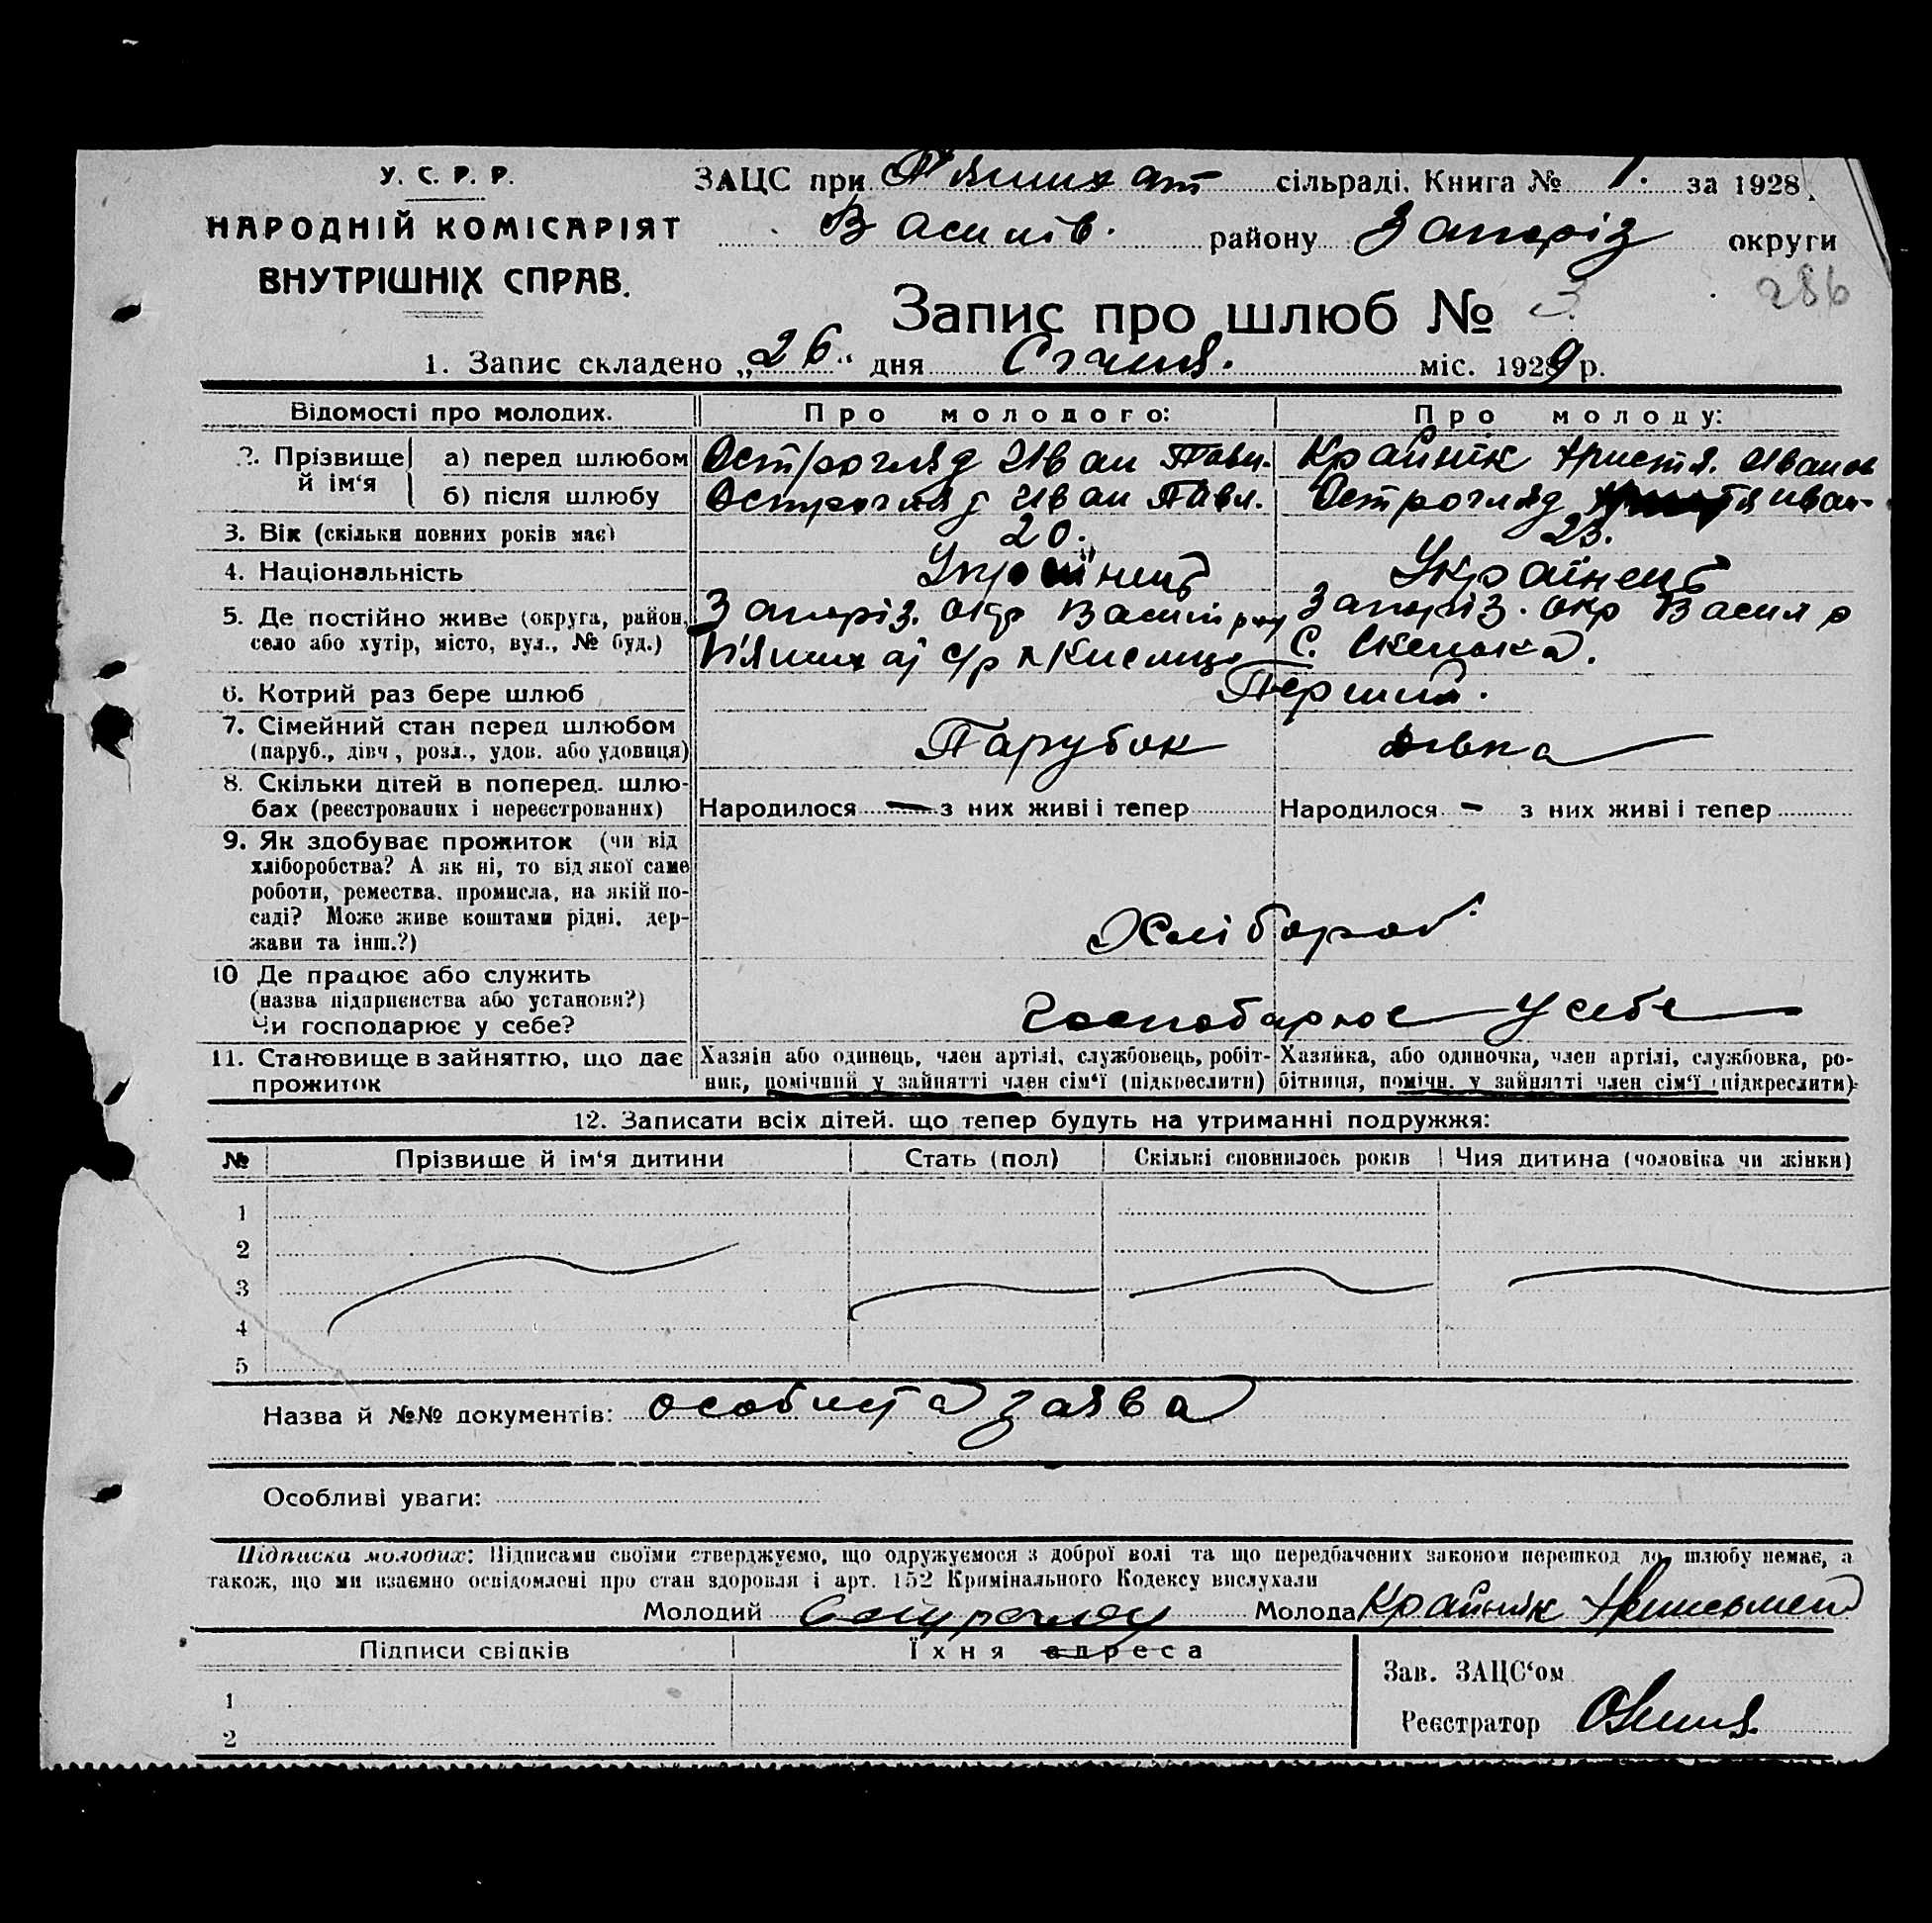 У. С. Р. Р.
НАРОДНІЙ КОМІСАРІЯТ
ВНУТРІШНІХ СПРАВ.
ЗАЦС при П'яишхат сільраді. Книга № 1. за 1928
Василів. району Запоріз округи
286
Запис про шлюб № 3
1. Запис складено „26“ дня Січня. міс. 1929 р.
Відомості про молодих. Про молодого: Про молоду:
2. Прізвище й ім‘я
а) перед шлюбом Острогляд Иван Павл. Крайнік Христя. Иванов
б) після шлюбу Острогляд Иван Павл. Острогляд Иван.
3. Вік (скільки повних років має) 20. 23.
4. Національність Українець Українець
5. Де постійно живе (округа, район, Запоріз. окр Васил рну Запоріз. окр Васил р
село або хутір, місто, вул., № буд.) с/р С. Скелька.
6. Котрий раз бере шлюб Перший.
7. Сімейний стан перед шлюбом Парубок дівка
(паруб., дівч., розл., удов. або удовиця)
8. Скільки дітей в поперед. шлю-
бах (реєстрованих і нереєстрованих) Народилося — з них живі і тепер Народилося - з них живі і тепер
9. Як здобуває прожиток (чи від
хліборобства? А як ні, то від якої саме
роботи, ремества, промисла, на якій по-
саді? Може живе коштами рідні, дер- Хлібороб
жави та інш.?)
10 Де працює або служить
(назва підприєнства або установи?) Господарює у себе
Чи господарює у себе?
11. Становище в зайняттю, що дає Хазяін або одинець, член артілі, службовець, робіт- Хазяйка, або одиночка, член артілі, службовка, ро-
прожиток ник, помічний у зайнятті член сім‘ї (підкреслити) бітниця, помічн. у зайнятті член сім‘ї (підкреслити)
12. Записати всіх дітей, що тепер будуть на утриманні подружжя:
№ Прізвище й ім‘я дитини Стать (пол) Скількі сповнилось років Чия дитина (чоловіка чи жінки)
1
2
3
4
5
Назва й №№ документів: особиста заява
Особливі уваги:
Підписка молодих: Підписами своїми стверджуємо, що одружуємося з доброї волі та що передбачених законом перешкод до шлюбу немає, а
також, що ми взаємно освідомлені про стан здоровля і арт. 152 Кримінального Кодексу вислухали
Молодий Молода Крайнік
Підписи свідків Їхня адреса
Зав. ЗАЦС‘ом
1
Реєстратор
2